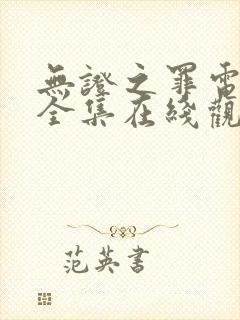 無證之罪電
全集在綫觀
范英書